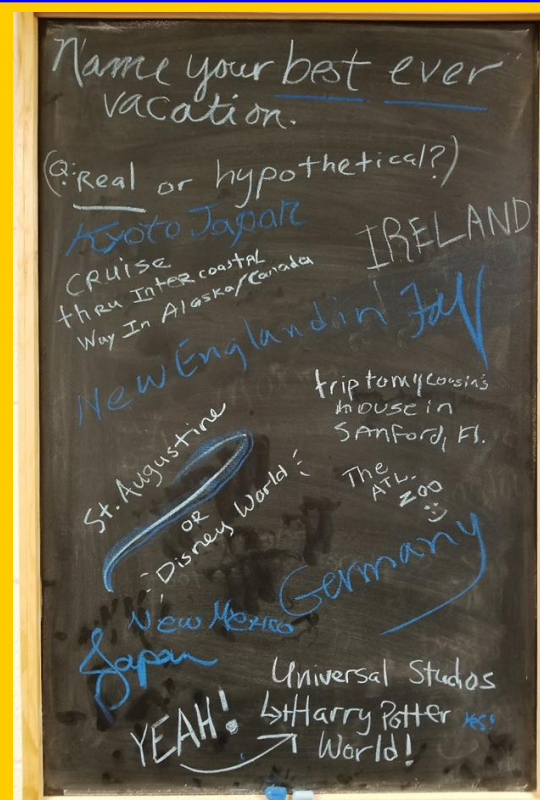 Name your best ever
vacation.
(Q: Real or hypothetical?)
Kyoto Japan
IRELAND
CRUISE
thru Inter coastal
Way In Alaska/Canada
New England in Fall
trip to my cousin's
house in
SAnford, Fl.
St. Augustine
OR
Disney World
The
ATL.
ZOO :)
Germany
New Mexico
Japan
Universal Studios
↳Harry Potter yes!
World!
YEAH!